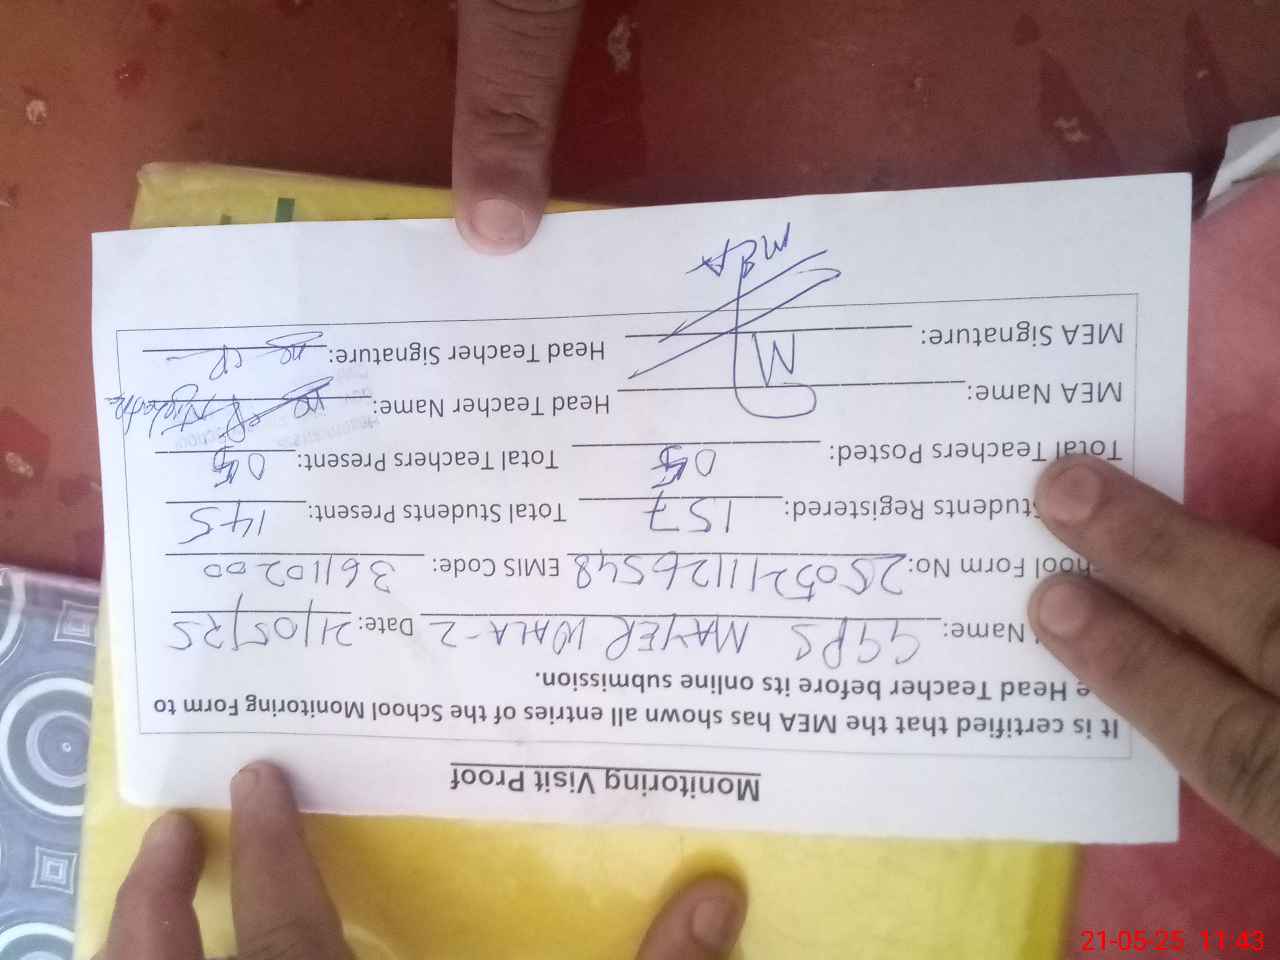 Monitoring Visit Proof
It is certified that the MEA has shown all entries of the School Monitoring Form to
e Head Teacher before its online submission.
Name: GGPS MAYER WALA-2 Date: 21/05/25
hool Form No: 25052111126548 EMIS Code: 36110200
Students Registered: 157 Total Students Present: 145
Total Teachers Posted: 05 Total Teachers Present: 05
MEA Name: Head Teacher Name:
MEA Signature: Head Teacher Signature:
MEA
21-05-25 11:43